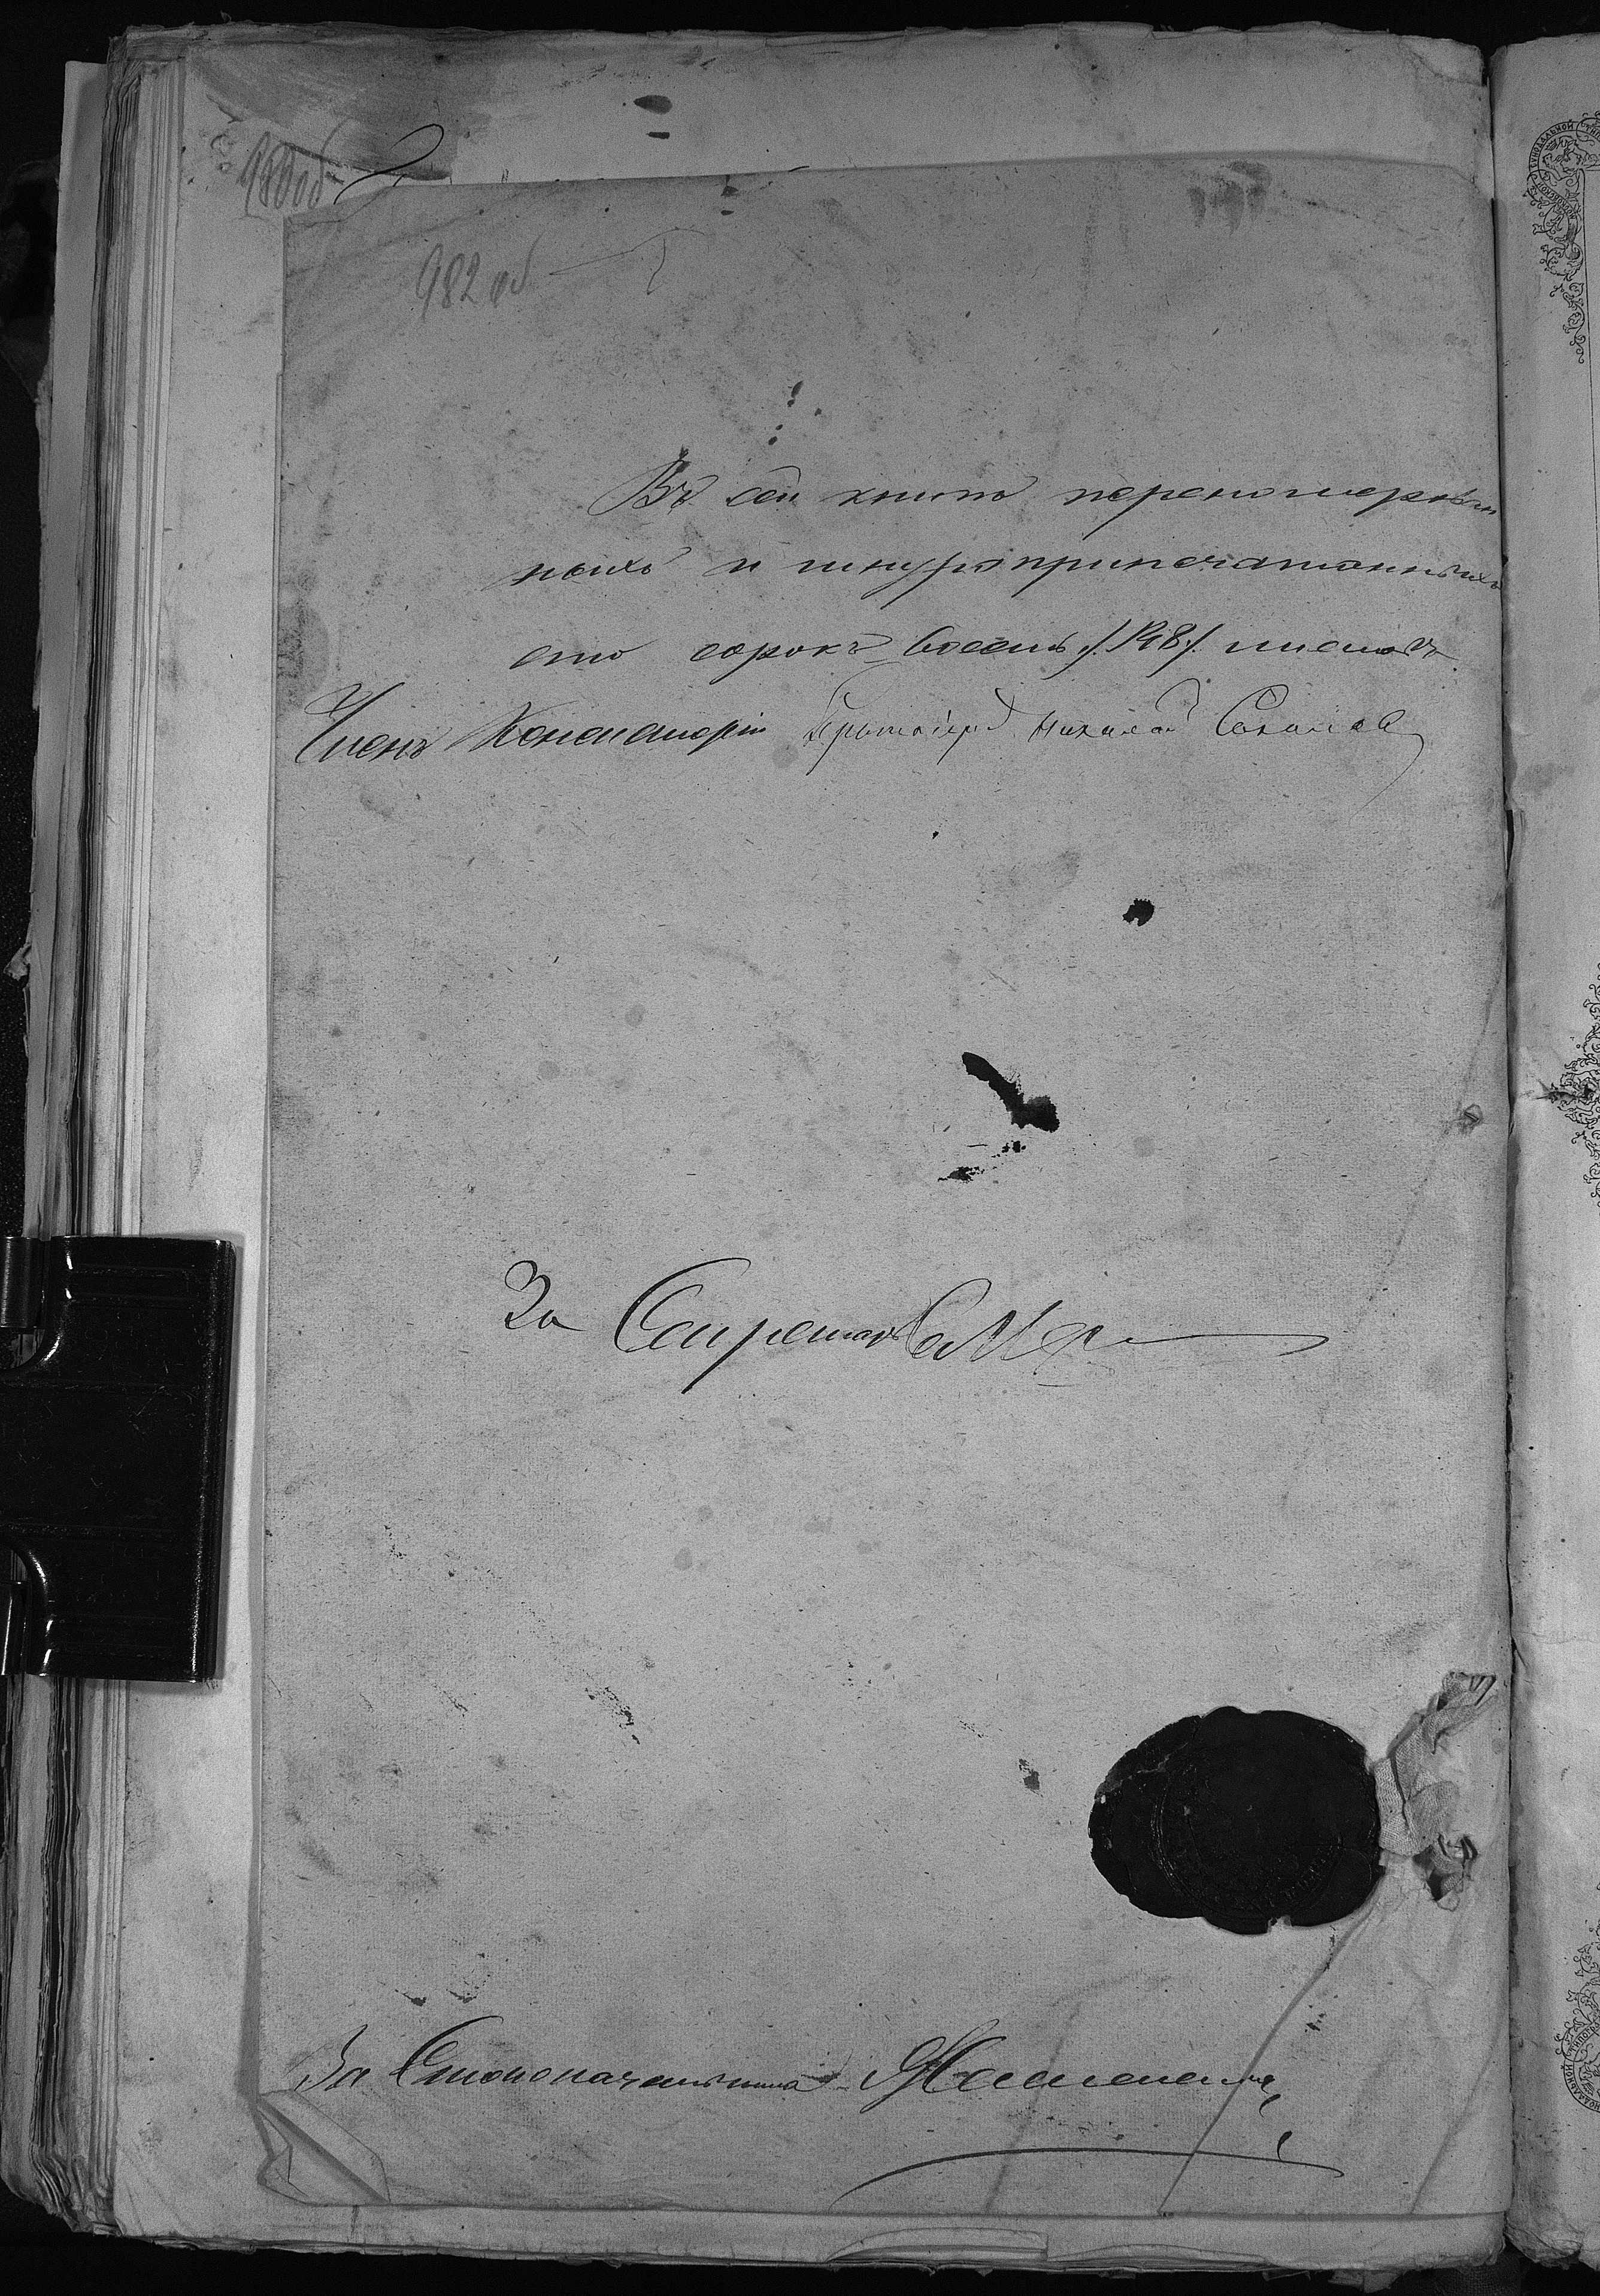 982 об
Въ сей книгѣ перенумерован
ныхъ и шнуроприпечатанныхъ
сто сорокъ восемь /148/ листовъ.
Членъ Консисторіи Протоіерей Николай Соколовъ
За Секретаря
За Столоначальника